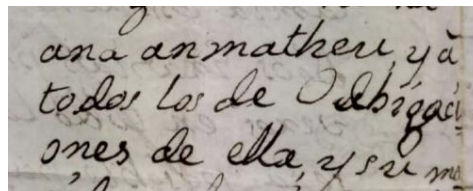 ana anmatheu, y à
todos los de Oobligaci
ones de ella, y su ma